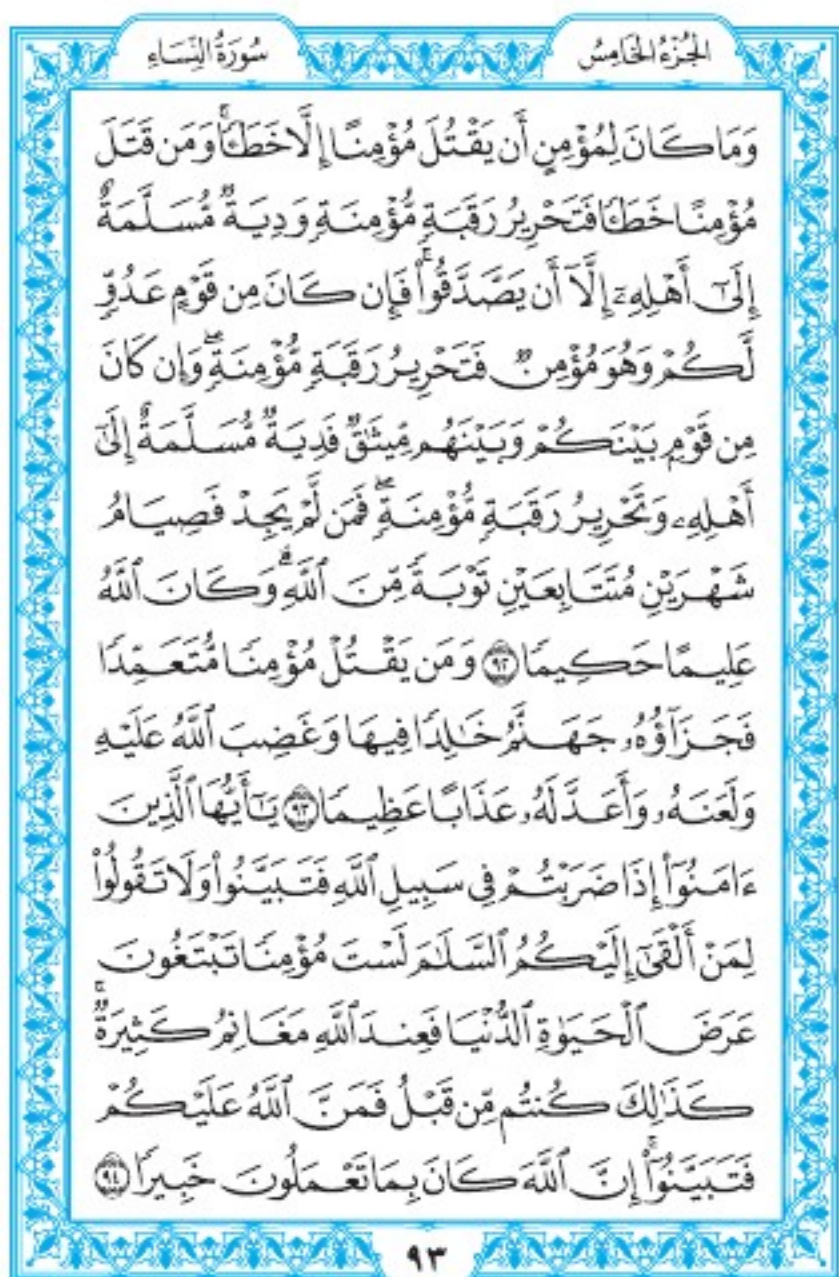 الجُزْءُ الخَامِسُ
سُورَةُ النِّسَاءِ
وَمَا كَانَ لِمُؤْمِنٍ أَن يَقْتُلَ مُؤْمِنًا إِلَّا خَطَـًٔاۚ وَمَن قَتَلَ
مُؤْمِنًا خَطَـًٔا فَتَحْرِيرُ رَقَبَةٍ مُّؤْمِنَةٍ وَدِيَةٌ مُّسَلَّمَةٌ
إِلَىٰٓ أَهْلِهِۦٓ إِلَّآ أَن يَصَّدَّقُوا۟ۚ فَإِن كَانَ مِن قَوْمٍ عَدُوٍّ
لَّكُمْ وَهُوَ مُؤْمِنٌ فَتَحْرِيرُ رَقَبَةٍ مُّؤْمِنَةٍۖ وَإِن كَانَ
مِن قَوْمٍۭ بَيْنَكُمْ وَبَيْنَهُم مِّيثَٰقٌ فَدِيَةٌ مُّسَلَّمَةٌ إِلَىٰٓ
أَهْلِهِۦ وَتَحْرِيرُ رَقَبَةٍ مُّؤْمِنَةٍۖ فَمَن لَّمْ يَجِدْ فَصِيَامُ
شَهْرَيْنِ مُتَتَابِعَيْنِ تَوْبَةً مِّنَ ٱللَّهِۗ وَكَانَ ٱللَّهُ
عَلِيمًا حَكِيمًا ٩٢ وَمَن يَقْتُلْ مُؤْمِنًا مُّتَعَمِّدًا
فَجَزَآؤُهُۥ جَهَنَّمُ خَٰلِدًا فِيهَا وَغَضِبَ ٱللَّهُ عَلَيْهِ
وَلَعَنَهُۥ وَأَعَدَّ لَهُۥ عَذَابًا عَظِيمًا ٩٣ يَٰٓأَيُّهَا ٱلَّذِينَ
ءَامَنُوٓا۟ إِذَا ضَرَبْتُمْ فِى سَبِيلِ ٱللَّهِ فَتَبَيَّنُوا۟ وَلَا تَقُولُوا۟
لِمَنْ أَلْقَىٰٓ إِلَيْكُمُ ٱلسَّلَٰمَ لَسْتَ مُؤْمِنًا تَبْتَغُونَ
عَرَضَ ٱلْحَيَوٰةِ ٱلدُّنْيَا فَعِندَ ٱللَّهِ مَغَانِمُ كَثِيرَةٌۚ
كَذَٰلِكَ كُنتُم مِّن قَبْلُ فَمَنَّ ٱللَّهُ عَلَيْكُمْ
فَتَبَيَّنُوٓا۟ۚ إِنَّ ٱللَّهَ كَانَ بِمَا تَعْمَلُونَ خَبِيرًا ٩٤
٩٣